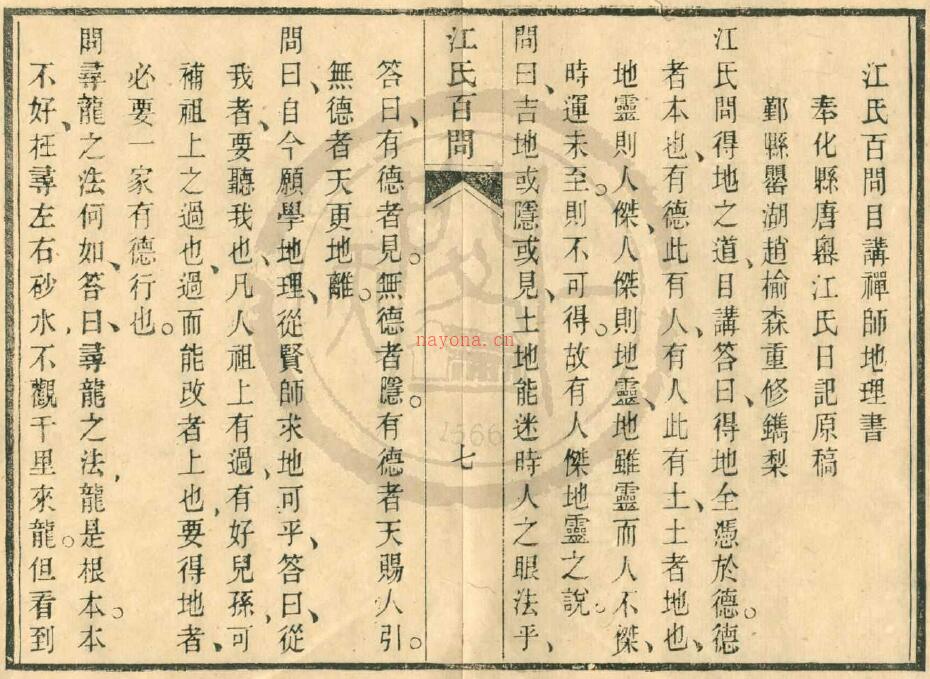 江氏百問目講禪師地理書
奉化縣唐嶴江氏日記原稿
鄞縣罌湖趙榆森重修鐫梨
江氏問得地之道、目講答曰、得地全憑於德。德
者本也、有德此有人、有人此有土、土者地也、
地靈則人傑、人傑則地靈、地雖靈而人不傑、
時運未至。則不可得。故有人傑地靈之說。
問曰、吉地或隱或見、土地能迷時人之眼法乎、
江氏百問
七
答曰、有德者見。無德者隱。有德者天賜人引。
無德者天更地離。
問曰、自今願學地理、從賢師求地可乎、答曰、從
我者、要聽我也、凡人祖上有過、有好兒孫、可
補祖上之過也、過而能改者上也、要得地者、
必要一家有德行也。
問尋龍之法何如、答曰、尋龍之法、龍是根本。本
不好、枉尋左右砂水、不觀千里來龍。但看到
nayona.cn
1566